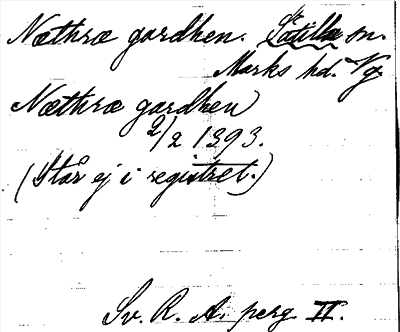 Næthræ gardhen. Sätila sn.
Marks hd. Vg.
Næthræ gardhen
2/2 1393.
(Står ej i registret.)
Sv. R. A. perg II.